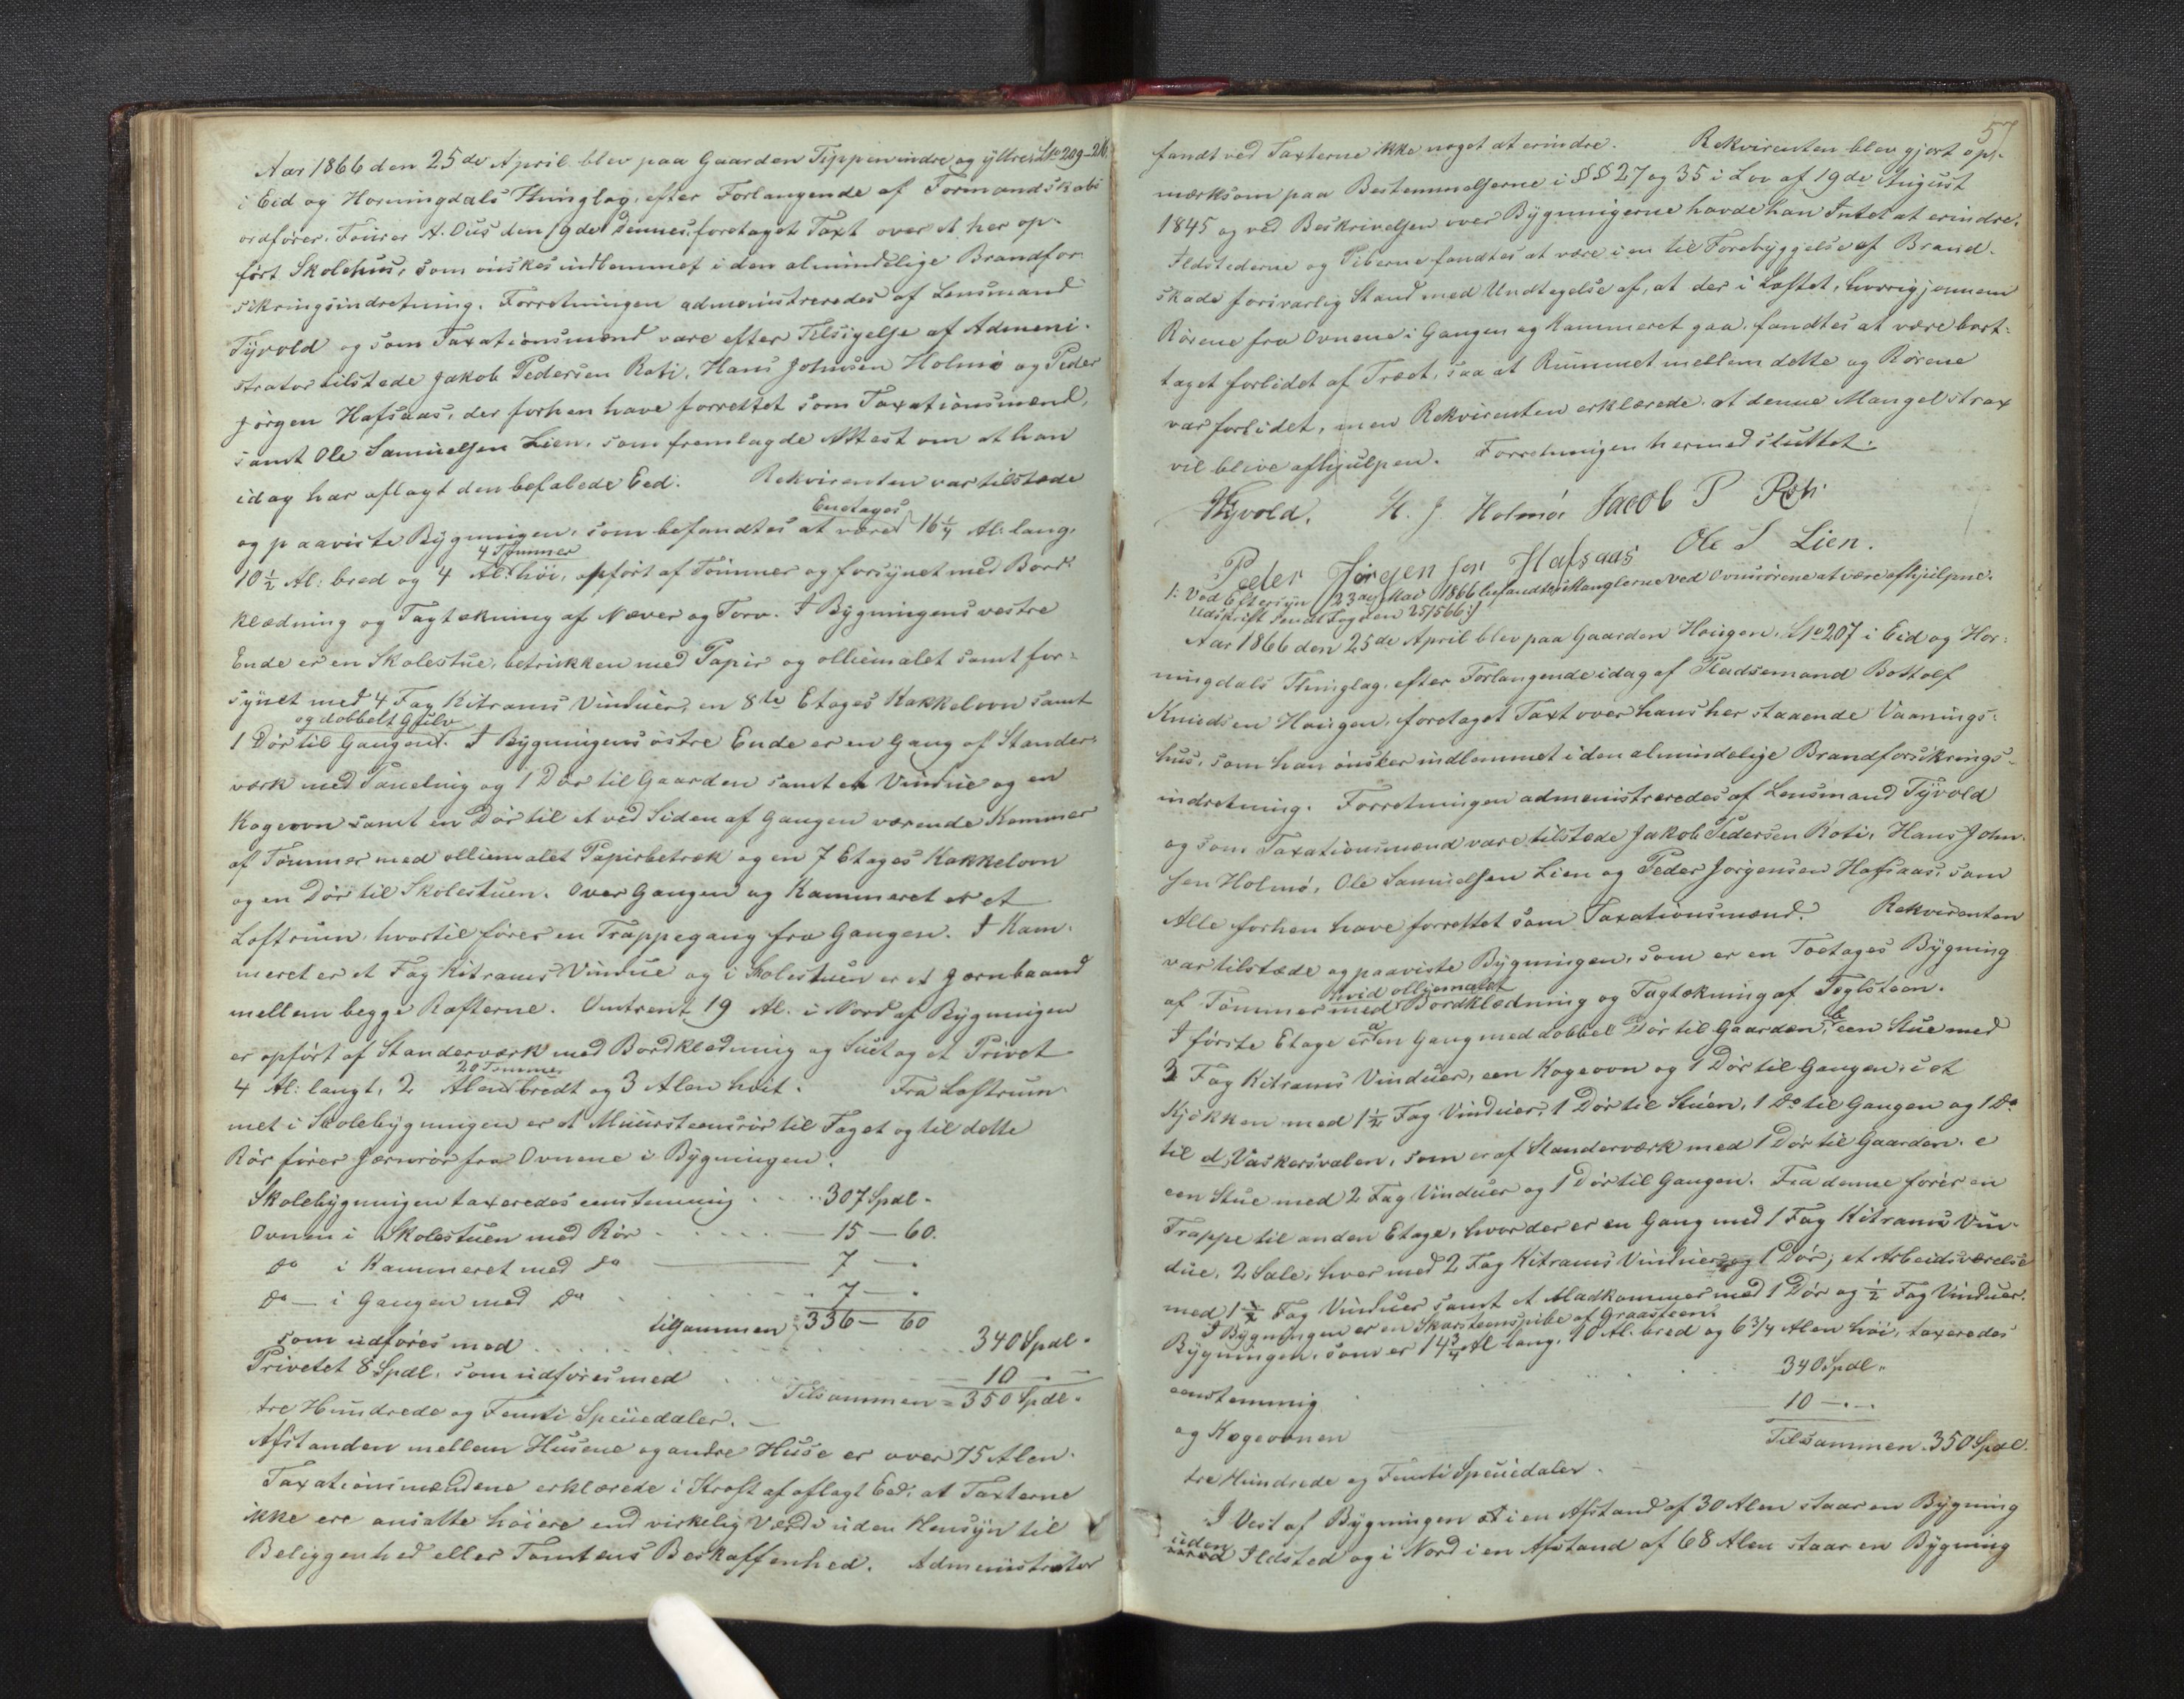 Aar 1866 den 25de April blev paa Gaarden Tippen indre og yttre, Lno 209-210
i Eid og Horningdals Thinglag, efter Forlangende af Formandskabs
ordfører, Fourer A. Ous den 19de Dennes, foretaget Taxt over et her op-
ført Skolehus, som önskes indlemmet i den almindelige Brandfor-
sikringsindretning. Forretningen administreredes af Lensmand
Tyvold og som Taxationsmænd vare efter Tilsigelse af Admini-
strator tilstede Jakob Pedersen Roti, Hans Johnsen Holmö og Peder
Jörgen Hafsaas, der forhen have forrettet som Taxationsmænd,
samt Ole Samuelsen Lien, som fremlagde Attest om at han
idag har aflagt den befalede Eed. Rekvirenten var tilstede
Enetages
og paaviste Bygningen, som befandtes at være 16 1/4 Al: lang,
4 Tommer
10 1/2 Al: bred og 4 Al: höi, opfört af Tömmer og forsynet med Bord-
klædning og Tagtækning af Næver og Torv. I Bygningens vestre
Ende er en Skolestue, betrukken med Papir og olliemalet samt for-
synet med 4 Fag Kitrams Vinduer, en 8te Etages Kakkelovn samt
og dobbelt Gulv
1 Dör til Gangen. I Bygningens östre Ende er en Gang af Stander-
værk med Panelning og 1 Dör til Gaarden samt et Vindue og en
Kogeovn samt en Dör til et ved Siden af Gangen værende Kammer
af Tömmer med olliemalet Papirbetræk og en 7 Etages Kakkelovn
og en Dör til Skolestuen. Over Gangen og Kammeret er et
Loftrum, hvortil förer en Trappegang fra Gangen. I Kam-
meret er et Fag Kitrams Vindue og i Skolestuen er et Jernbaand
mellem begge Rafterne. Omtrent 19 Al. i Nord af Bygningen
er opfört af Standerværk med Bordklædning og Sutag et Privet
20 Tommer
4 Al: langt, 2 Alen bredt og 3 Alen höit. Fra Loftrum-
met i Skolebygningen er et Muursteensrör til Taget og til dette
Rör förer Jernrör fra Ovnene i Bygningen.
Skolebygningen taxeredes eenstemmig . . . . 307 Spdl.
Ovnen i Skolestuen med Rör . . . . . — 15 — 60.
do i Kammeret med do — 7 — .
do — i Gangen med do . . . . 7 — .
tilsammen 336 — 60
som udföres med . . . . . 340 Spdl.
Privetet 8 Spdl. som udföres med . . . — 10 — —
Tilsammen = 350 Spdl.
tre Hundrede og Femti Speciedaler. —
Afstanden mellem Husene og andre Huse er over 75 Alen.
Taxationsmændene erklærede i Kraft af aflagt Eed, at Taxterne
ikke ere ansatte höiere end virkelig Værdi uden Hensyn til
Beliggenhed eller Tomtens Beskaffenhed. Administrator
57
fandt ved Taxterne ikke noget at erindre. Rekvirenten blev gjort op-
mærksom paa Bestemmelserne i §§ 27 og 35 i Lov af 19de August
1845 og ved Beskrivelsen over Bygningerne havde han Intet at erindre.
Ildstederne og Piberne fandtes at være i en til Forebyggelse af Brand-
skade forsvarlig Stand med Undtagelse af, at der i Loftet, hvorigjennem
Rörene fra Ovnene i Gangen og Kammeret gaa, fandtes at være bort-
taget forlidet af Træet, saa at Rummet mellem dette og Rörene
var forlidet, men Rekvirenten erklærede, at denne Mangel strax
vil blive afhjulpen. Forretningen hermed sluttet:
Tyvold. H. J. Holmö. Jacob P Roti
Peder Jörgensen Hafsaas Ole S Lien.
/: Ved Eftersyn 23de Mai 1866 befandtes Manglerne ved Ovnsrörene at være afhjulpne.
Udskrift sendt Fogden 25/5 66 :/
Aar 1866 den 25de April blev paa Gaarden Hougen, Lno 207 i Eid og Hor-
ningdals Thinglag, efter Forlangende idag af Pladsemand Bottolf
Knudsen Hougen, foretaget Taxt over hans her staaende Vaanings-
hus, som han önsker indlemmet i den almindelige Brandforsikrings-
indretning. Forretningen administreredes af Lensmand Tyvold
og som Taxationsmænd vare tilstede Jakob Pedersen Roti, Hans John-
sen Holmö, Ole Samuelsen Lien og Peder Jörgensen Hafsaas, som
Alle forhen have forrettet som Taxationsmænd. Rekvirenten
var tilstede og paaviste Bygningen, som er en Toetages Bygning
hvid olljemalet
af Tömmer med Bordklædning og Tagtækning af Teglsteen.
I förste Etage er a en Gang med dobbel Dör til Gaarden, b een Stue med
3 Fag Kitrams Vinduer, een Kogeovn og 1 Dör til Gangen, c et
Kjökken med 1 1/2 Fag Vinduer, 1 Dör til Stuen, 1 do til Gangen og 1 do
til d, Vaskersvalen, som er af Standerværk med 1 Dör til Gaarden. e
een Stue med 2 Fag Vinduer og 1 Dör til Gangen. Fra denne förer en
Trappe til anden Etage, hvor der er en Gang med 1 Fag Kitrams Vin-
due, 2 Sale, hver med 2 Fag Kitrams Vinduer og 1 Dör; et Arbeidsværelse
med 1 1/2 Fag Vinduer samt et Madkammer med 1 Dör og 1/2 Fag Vinduer.
I Bygningen er en Skorsteenspibe af Graasteen.
Bygningen, som er 14 3/4 Al lang, 10 Al. bred og 6 3/4 Alen höi, taxeredes
eenstemmig . . . 340 Spdl.
og Kogeovnen — 10 — . —
Tilsammen. 350 Spdl.
tre Hundrede og Femti Speciedaler.
I Vest af Bygningen i en Afstand af 30 Alen staar en Bygning
uden Ildsted og i Nord i en Afstand af 68 Alen staar en Bygning